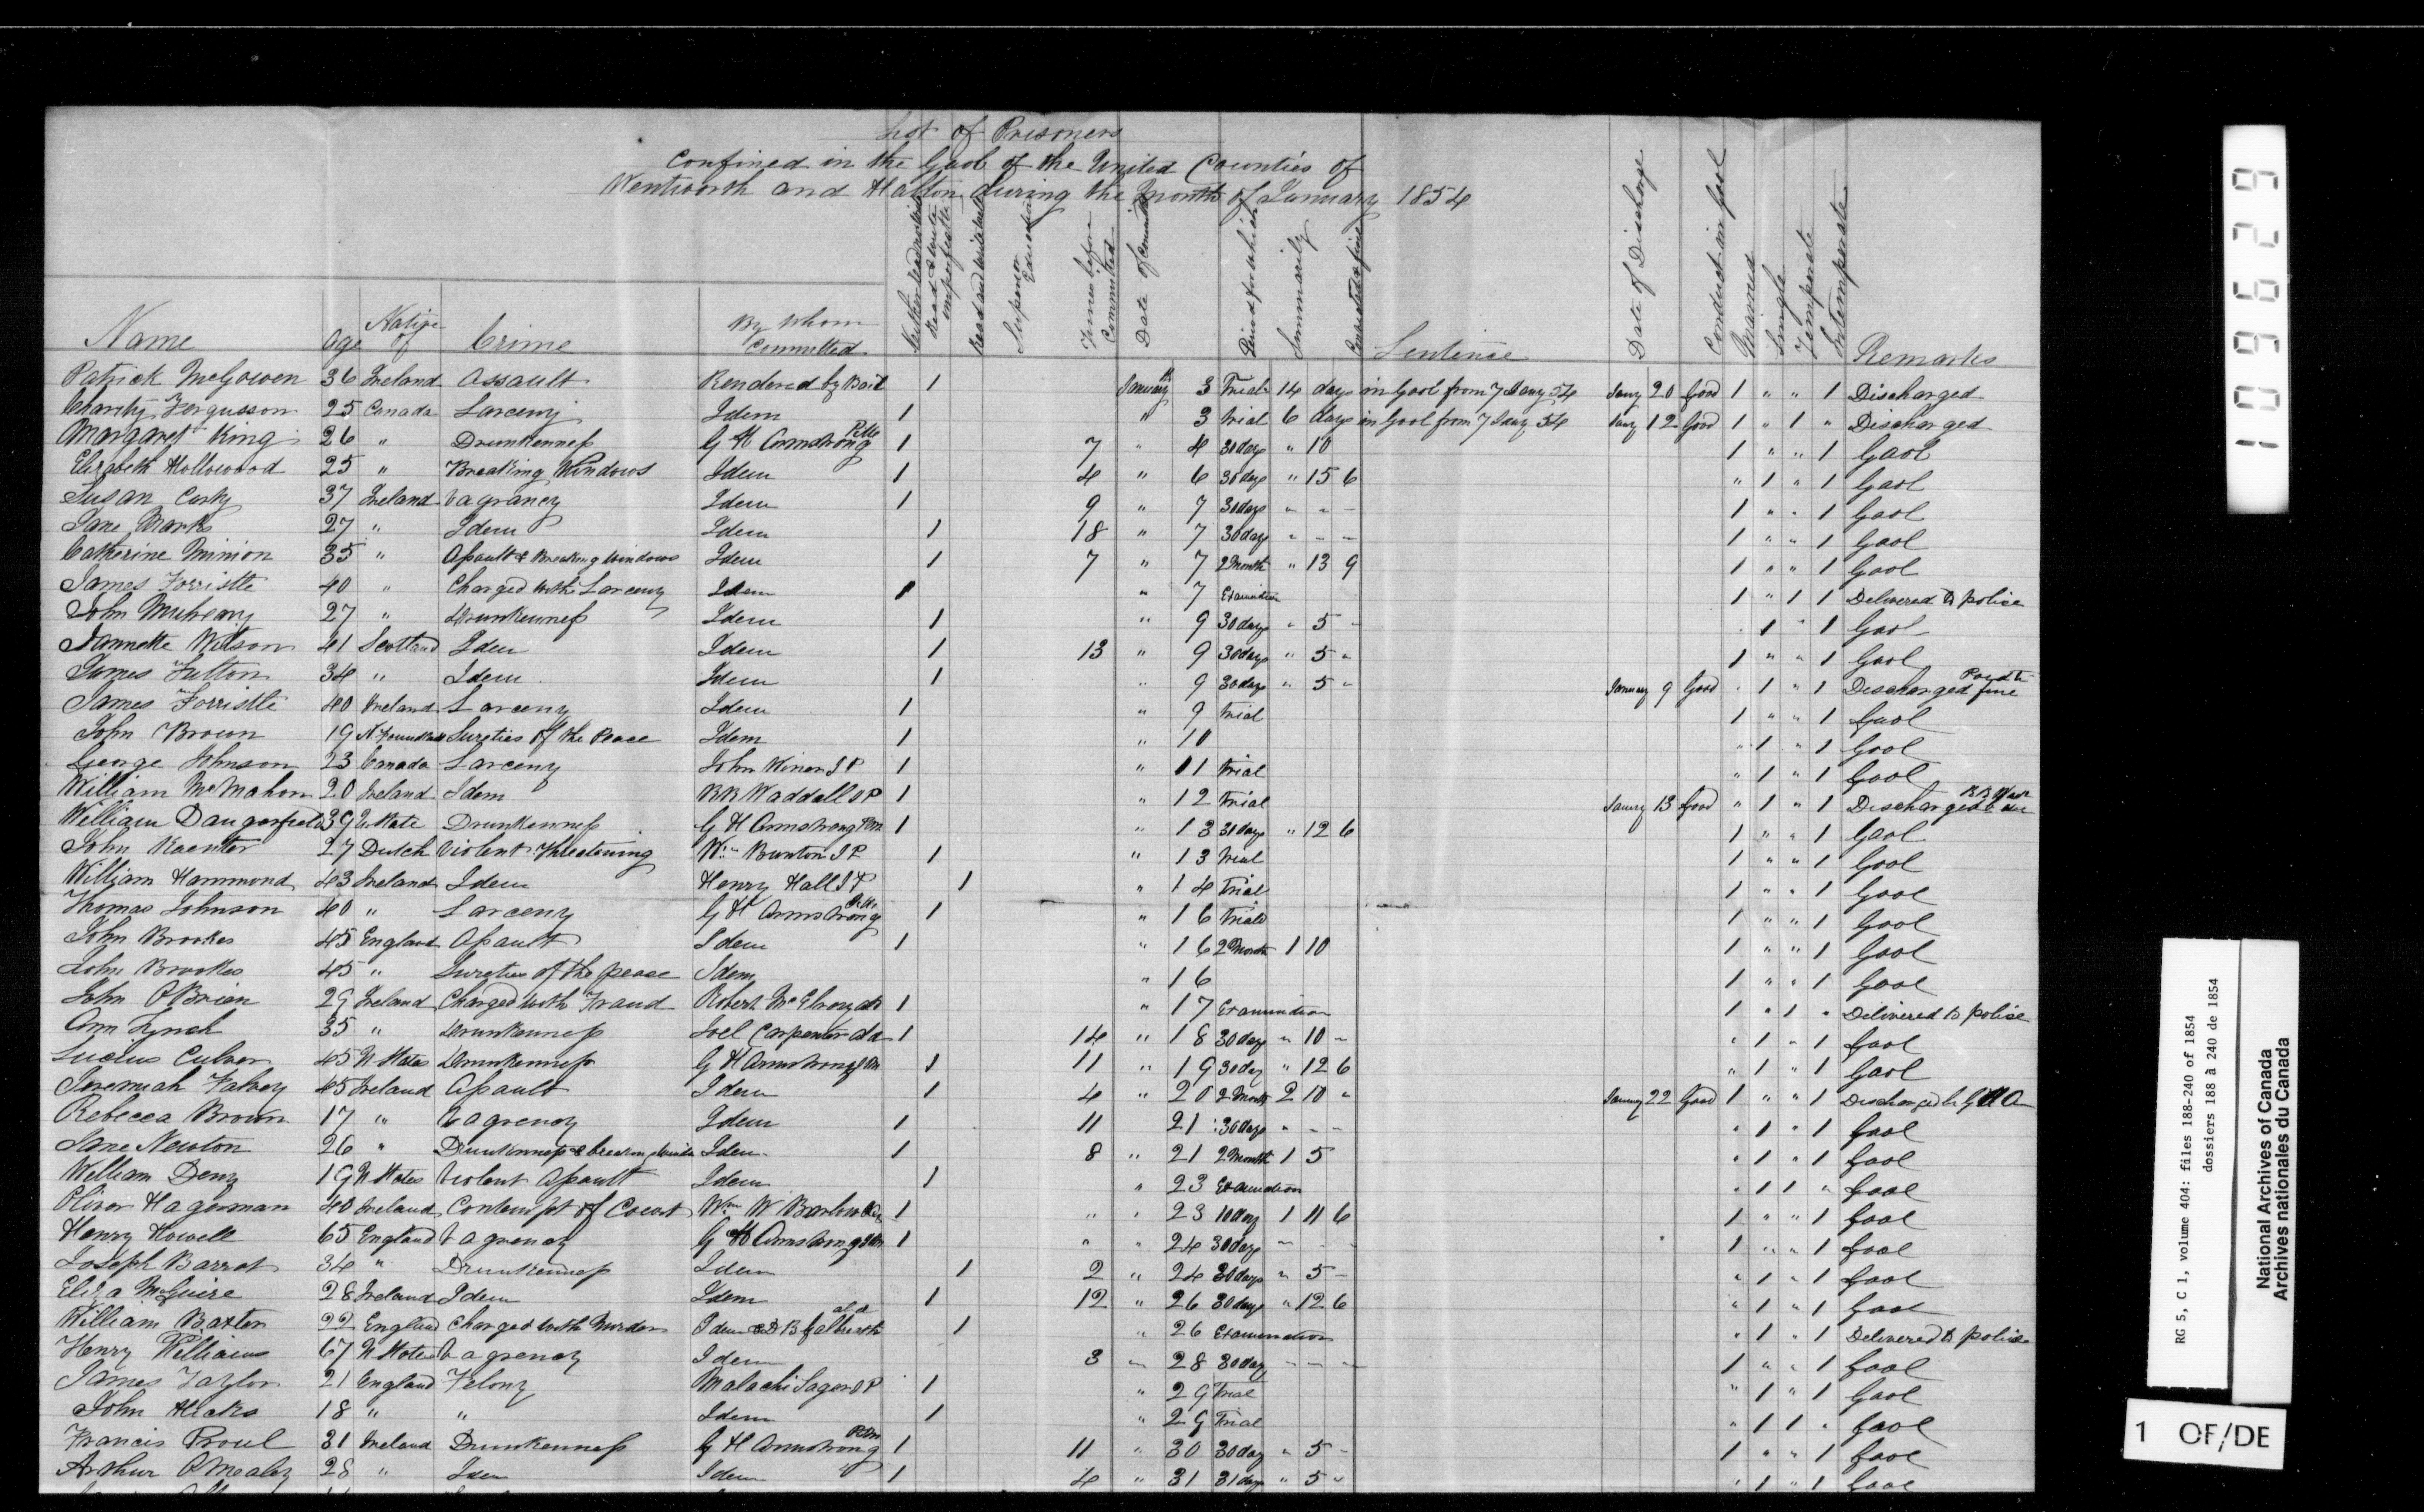 List of Prisoners
Confined in the Gaol of the United Counties of
Wentworth and Halton during the Month of January 1854
Name Age Native of Crime By Whom Committed Neither read nor write Read & write imperfectly Read and write well Superior Education Times before Committed Date of Period for which Summarily Sentence Date of Discharge Conduct in gaol Married Single Temperate Intemperate Remarks
Patrick McGowen 36 Ireland Assault Rendered by Bail 1 January 3 Trial 14 days in Gaol from 7 Jany 54 Jany 20 Good 1 " " 1 Discharged
Charity Fergusson 25 Canada Larceny Idem 1 " 3 Trial 6 days in Gaol from 7 Jany 54 Jany 12 Good 1 " 1 " Discharged
Margaret King 26 " Drunkenness G H Armstrong PM 1 7 " 4 30 days " 10 1 " " 1 Gaol
Elizabeth Hollowood 25 " Breaking Windows Idem 1 4 " 6 30 days " 15 6 " 1 " 1 Gaol
Susan 37 Ireland Vagrancy Idem 1 9 " 7 30 days " - - 1 " " 1 Gaol
Jane Marks 27 " Idem Idem 1 18 " 7 30 days " - - 1 " " 1 Gaol
Catherine Minion 35 " Assault & Breaking Windows Idem 1 7 " 7 2 Month " 13 9 1 " " 1 Gaol
James Forristle 40 " Charged with Larceny Idem 1 " 7 1 " 1 1 Delivered to police
John 27 " Drunkenness Idem 1 " 9 30 days " 5 - " 1 " 1 Gaol
Jannette Wilson 41 Scotland Idem Idem 1 13 " 9 30 days " 5 " 1 " " 1 Gaol
James Fulton 34 " Idem Idem 1 " 9 30 days " 5 - January 9 Good " 1 " 1 Discharged Paid the fine
James Forristle 40 Ireland Larceny Idem 1 " 9 Trial 1 " " 1 Gaol
John Brown 19 Sureties of the Peace Idem 1 " 10 " 1 " 1 Gaol
George Johnson 23 Canada Larceny John Winer J P 1 " 11 Trial " 1 " 1 Gaol
William McMahon 20 Ireland Idem R R Waddell J P 1 " 12 Trial Jany 13 Good " 1 " 1 Discharged
William Dangerfield 39 U State Drunkenness G H Armstrong PM 1 " 13 31 days " 12 6 1 " " 1 Gaol
John 27 Dutch Violent Threatening Wm Bunton J P 1 " 13 Trial 1 " " 1 Gaol
William Hammond 43 Ireland Idem Henry Hall J P 1 " 14 Trial 1 " " 1 Gaol
Thomas Johnson 40 " Larceny G H Armstrong PM 1 " 16 Trial 1 " " 1 Gaol
John Brookes 45 England Assault Idem 1 " 16 2 Month 1 10 1 " " 1 Gaol
John Brookes 45 " Sureties of the peace Idem " 16 1 " " 1 Gaol
John OBrien 29 Ireland Charged with Fraud Robert McElroy 1 " 17 Examination 1 " 1 " Delivered to police
Ann Lynch 35 " Drunkenness Joel Carpenter 1 14 " 18 30 days " 10 - " 1 " 1 Gaol
Lucius Culver 45 U States Drunkenness G H Armstrong PM 1 11 " 19 30 day " 12 6 " 1 " 1 Gaol
Jeremiah Falvey 45 Ireland Assault Idem 1 4 " 20 2 Month 2 10 " Jany 22 Good 1 " " 1 Discharged by G H A
Rebecca Brown 17 " Vagrency Idem 1 11 21 30 days " - - " 1 " 1 Gaol
Jane Newton 26 " Drunkenness & breaking Idem 1 8 " 21 2 Month 1 5 " 1 " 1 Gaol
William Deny 19 U States Violent Assault Idem 1 " 23 Examination " 1 1 " Gaol
Oliver Hagerman 40 Ireland Contempt of Court Wm W Barlow 1 " " 23 10 day 1 11 6 1 " " 1 Gaol
Henry Howell 65 England Vagrency G H Armstrong PM 1 " " 24 30 days " - - 1 " " 1 Gaol
Joseph Barrat 34 " Drunkenness Idem 1 2 " 24 30 days " 5 - " 1 " 1 Gaol
Eliza McGuire 28 Ireland Idem Idem 1 12 " 26 30 days " 12 6 " 1 " 1 Gaol
William Baxter 22 England Charged with Murder Idem & D B Galbreath 1 " 26 Examination " 1 " 1 Delivered to police
Henry Williams 67 U States Vagrency Idem 3 " 28 30 day - - - 1 " " 1 Gaol
James Taylor 21 England Felony Malachi Sager J P 1 " 29 Trial " 1 " 1 Gaol
John Hicks 18 " " Idem 1 " 29 Trial " 1 1 " Gaol
Francis Proul 31 Ireland Drunkenness G H Armstrong PM 1 11 " 30 30 day " 5 - 1 " " 1 Gaol
Arthur OMealey 28 " Idem Idem 1 4 " 31 31 days " 5 " " 1 " 1 Gaol
109629
RG 5, C 1, volume 404: files 188-240 of 1854
dossiers 188 à 240 de 1854
National Archives of Canada
Archives nationales du Canada
1 OF/DE